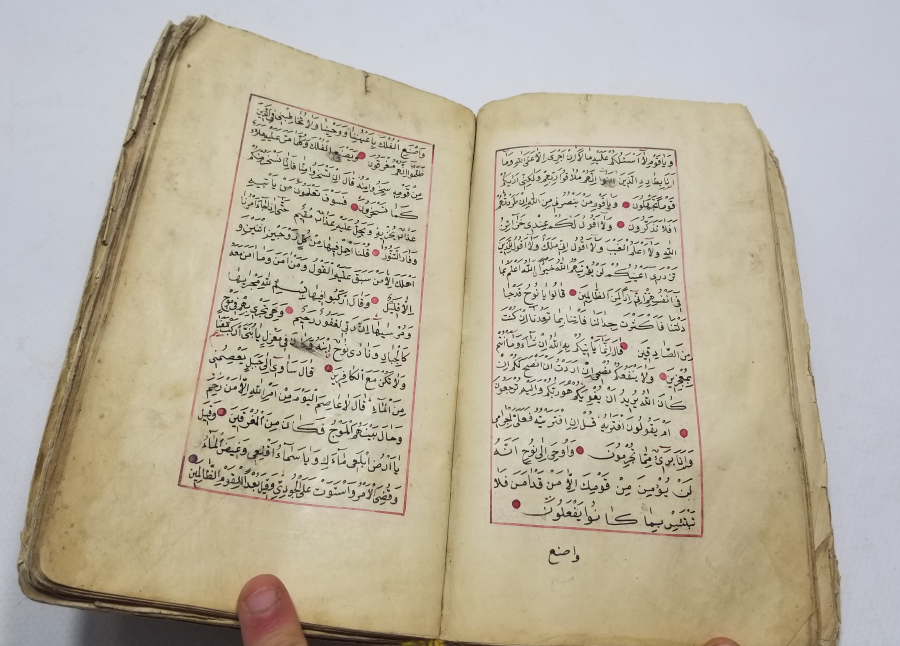 وَيَا قَوْمِ لَا اَسْئَلُكُمْ عَلَيْهِ مَالًا اِنْ اَجْرِيَ اِلَّا عَلَى اللّٰهِ وَمَا
اَنَا بِطَارِدِ الَّذِينَ اٰمَنُوا اِنَّهُمْ مُلَاقُوا رَبِّهِمْ وَلٰكِنِّي اَرٰيكُمْ
قَوْمًا تَجْهَلُونَ وَيَا قَوْمِ مَنْ يَنْصُرُنِي مِنَ اللّٰهِ اِنْ طَرَدْتُهُمْ
اَفَلَا تَذَكَّرُونَ وَلَا اَقُولُ لَكُمْ عِنْدِي خَزَائِنُ
اللّٰهِ وَلَا اَعْلَمُ الْغَيْبَ وَلَا اَقُولُ اِنِّي مَلَكٌ وَلَا اَقُولُ لِلَّذِينَ
تَزْدَرِي اَعْيُنُكُمْ لَنْ يُؤْتِيَهُمُ اللّٰهُ خَيْرًا اَللّٰهُ اَعْلَمُ بِمَا
فِي اَنْفُسِهِمْ اِنِّي اِذًا لَمِنَ الظَّالِمِينَ قَالُوا يَا نُوحُ قَدْ جَا
دَلْتَنَا فَاَكْثَرْتَ جِدَالَنَا فَأْتِنَا بِمَا تَعِدُنَا اِنْ كُنْتَ
مِنَ الصَّادِقِينَ قَالَ اِنَّمَا يَأْتِيكُمْ بِهِ اللّٰهُ اِنْ شَاءَ وَمَا اَنْتُمْ
بِمُعْجِزِينَ وَلَا يَنْفَعُكُمْ نُصْحِي اِنْ اَرَدْتُ اَنْ اَنْصَحَ لَكُمْ اِنْ
كَانَ اللّٰهُ يُرِيدُ اَنْ يُغْوِيَكُمْ هُوَ رَبُّكُمْ وَاِلَيْهِ تُرْجَعُونَ
اَمْ يَقُولُونَ افْتَرٰيهُ قُلْ اِنِ افْتَرَيْتُهُ فَعَلَيَّ اِجْرَامِي
وَاَنَا بَرِيءٌ مِمَّا تُجْرِمُونَ وَاُوحِيَ اِلٰى نُوحٍ اَنَّهُ
لَنْ يُؤْمِنَ مِنْ قَوْمِكَ اِلَّا مَنْ قَدْ اٰمَنَ فَلَا
تَبْتَئِسْ بِمَا كَانُوا يَفْعَلُونَ
واصنع
وَاصْنَعِ الْفُلْكَ بِاَعْيُنِنَا وَوَحْيِنَا وَلَا تُخَاطِبْنِي فِي الَّذِينَ
ظَلَمُوا اِنَّهُمْ مُغْرَقُونَ وَيَصْنَعُ الْفُلْكَ وَكُلَّمَا مَرَّ عَلَيْهِ مَلَاٌ
مِنْ قَوْمِهِ سَخِرُوا مِنْهُ قَالَ اِنْ تَسْخَرُوا مِنَّا فَاِنَّا نَسْخَرُ مِنْكُمْ
كَمَا تَسْخَرُونَ فَسَوْفَ تَعْلَمُونَ مَنْ يَأْتِيهِ
عَذَابٌ يُخْزِيهِ وَيَحِلُّ عَلَيْهِ عَذَابٌ مُقِيمٌ حَتّٰى اِذَا جَاءَ اَمْرُنَا
وَفَارَ التَّنُّورُ قُلْنَا احْمِلْ فِيهَا مِنْ كُلٍّ زَوْجَيْنِ اثْنَيْنِ وَ
اَهْلَكَ اِلَّا مَنْ سَبَقَ عَلَيْهِ الْقَوْلُ وَمَنْ اٰمَنَ وَمَا اٰمَنَ مَعَهُ
اِلَّا قَلِيلٌ وَقَالَ ارْكَبُوا فِيهَا بِسْمِ اللّٰهِ مَجْرٰيهَا
وَمُرْسٰيهَا اِنَّ رَبِّي لَغَفُورٌ رَحِيمٌ وَهِيَ تَجْرِي بِهِمْ فِي مَوْجٍ
كَالْجِبَالِ وَنَادٰى نُوحٌ ابْنَهُ وَكَانَ فِي مَعْزِلٍ يَا بُنَيَّ ارْكَبْ مَعَنَا
وَلَا تَكُنْ مَعَ الْكَافِرِينَ قَالَ سَاٰوِي اِلٰى جَبَلٍ يَعْصِمُنِي
مِنَ الْمَاءِ قَالَ لَا عَاصِمَ الْيَوْمَ مِنْ اَمْرِ اللّٰهِ اِلَّا مَنْ رَحِمَ
وَحَالَ بَيْنَهُمَا الْمَوْجُ فَكَانَ مِنَ الْمُغْرَقِينَ وَقِيلَ
يَا اَرْضُ ابْلَعِي مَاءَكِ وَيَا سَمَاءُ اَقْلِعِي وَغِيضَ الْمَاءُ
وَقُضِيَ الْاَمْرُ وَاسْتَوَتْ عَلَى الْجُودِيِّ وَقِيلَ بُعْدًا لِلْقَوْمِ الظَّالِمِينَ